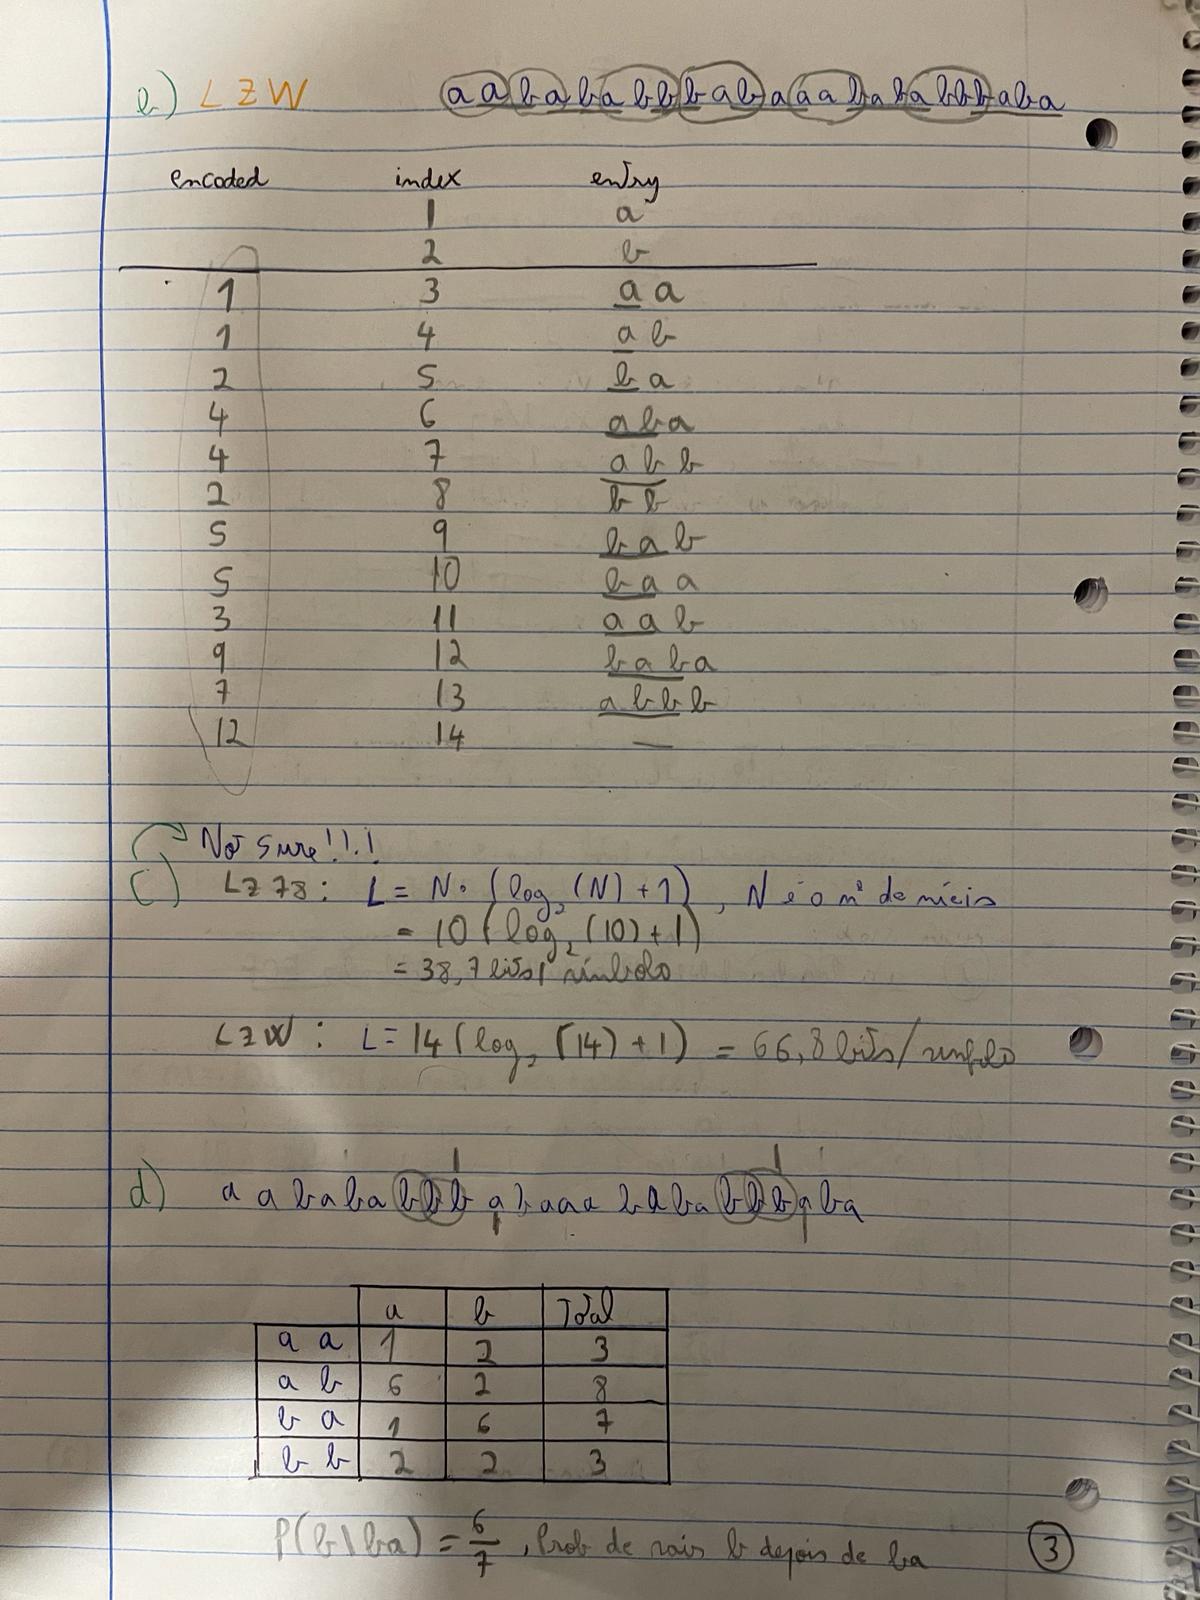 b) LZW aabababbbabaaabababbbaba
encoded index entry
1 a
2 b
1 3 aa
1 4 ab
2 5 ba
4 6 aba
4 7 abb
2 8 bb
5 9 bab
5 10 baa
3 11 aab
9 12 baba
7 13 abbb
12 14 —
Not sure!!.!
c) LZ78: L = N·(log₂(N)+1), N é o nº de níveis
= 10(log₂(10)+1)
= 38,7 bits/símbolo
LZW: L = 14(log₂(14)+1) = 66,8 bits/símbolo
1 1
d) aabababbbabaaabababbbaba
a b Total
aa 1 2 3
ab 6 2 8
ba 1 6 7
bb 2 2 3
P(b\ba) = 6/7, Prob de sair b depois de ba 3